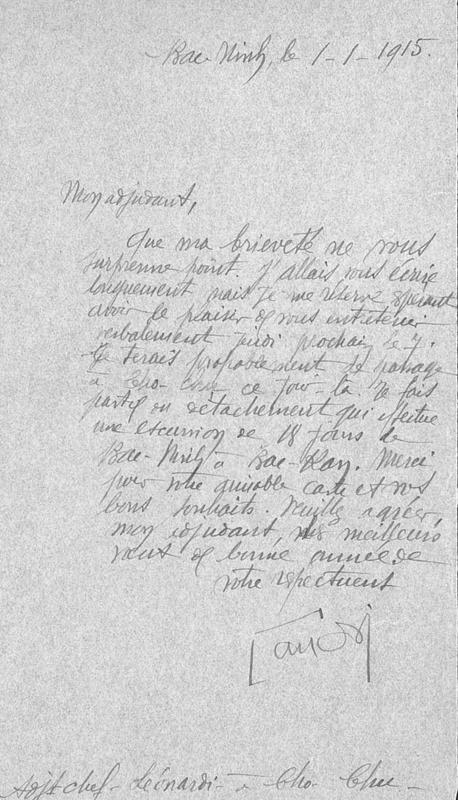 Bac-Ninh, le 1-1-1915.
Mon adjudant,
Que ma brieveté ne vous
surprenne point. J'allais vous écrire
longuement mais je me réserve espérant
avoir le plaisir de vous entretenir
verbalement jeudi prochain le 7.
Je serais probablement de passage
à Cho-Chu ce jour là. Je fais
partie du détachement qui effectue
une excursion de 18 jours de
Bac-Ninh à Bac-Kan. Merci
pour votre aimable carte et vos
bons souhaits. Veuillez agréer,
mon adjudant, mes meilleurs
vœux de bonne année de
votre respectueux
Adjt chef Léonardi à Cho-Chu